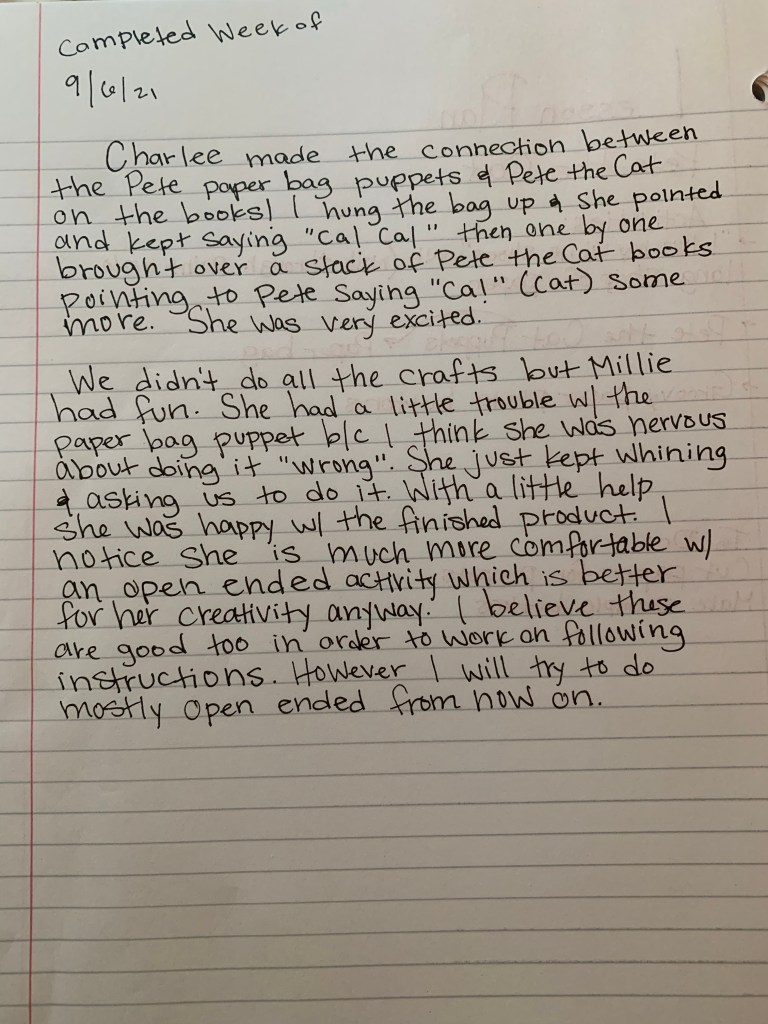 Completed Week of
9/6/21
Charlee made the connection between
the Pete paper bag puppets & Pete the Cat
on the books! I hung the bag up & she pointed
and kept saying "Ca! Ca!" then one by one
brought over a stack of Pete the Cat books
pointing to Pete saying "Ca!" (cat) some
more. She was very excited.
We didn't do all the crafts but Millie
had fun. She had a little trouble w/ the
paper bag puppet b/c I think she was nervous
about doing it "wrong". She just kept whining
& asking us to do it. With a little help
she was happy w/ the finished product. I
notice she is much more comfortable w/
an open ended activity which is better
for her creativity anyway. I believe these
are good too in order to work on following
instructions. However I will try to do
mostly open ended from now on.